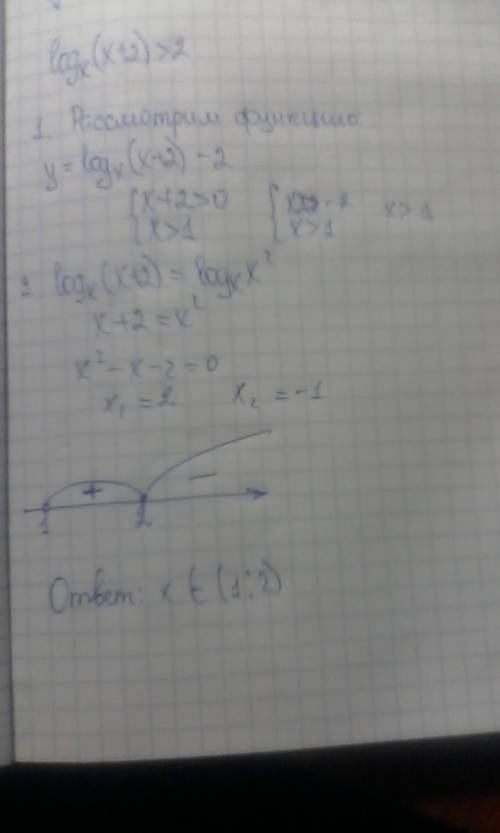 log_x(x+2)>2
1. Рассмотрим функцию
y=log_x(x+2)-2
{x+2>0 {x>-2 x>1
{x>1 {x>1
2. log_x(x+2)=log_x x²
x+2=x²
x²-x-2=0
x₁=2 x₂=-1
+ -
1 2
Ответ: x ∈ (1;2)